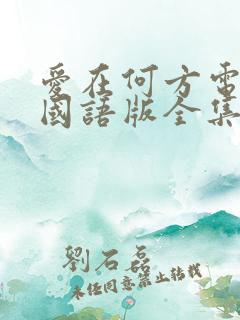 愛在何方電
國語版全集
劉石磊
未經同意禁止轉載